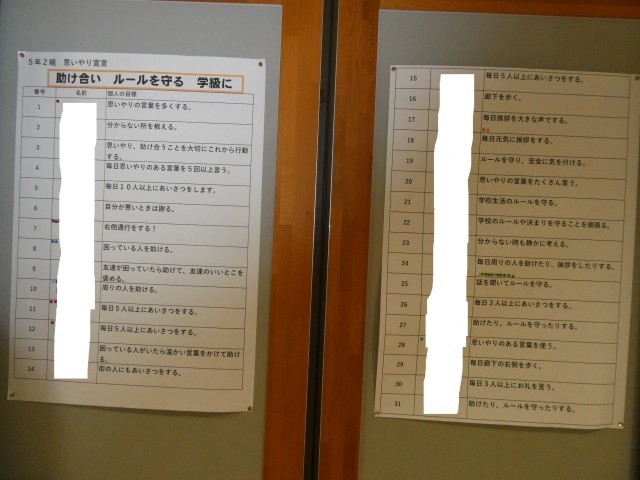 ５年２組　思いやり宣言
助け合い　ルールを守る　学級に
番号　名前　個人の目標
1　思いやりの言葉を多くする。
2　分からない所を教える。
3　思いやり、助け合うことを大切にこれから行動
する。
4　毎日思いやりのある言葉を５回以上言う。
5　毎日１０人以上にあいさつをします。
6　自分が悪いときは謝る。
7　右側通行をする！
8　困っている人を助ける。
9　友達が困っていたら助けて、友達のいいとこを
褒める。
10　周りの人を助ける。
11　毎日５人以上にあいさつをする。
12　毎日５人以上にあいさつをする。
13　困っている人がいたら温かい言葉をかけて助け
る。
14　街の人にもあいさつをする。
15　毎日５人以上にあいさつをする。
16　廊下を歩く。
17　毎日挨拶を大きな声でする。
18　毎日元気に挨拶をする。
19　ルールを守り、安全に気を付ける。
20　思いやりの言葉をたくさん言う。
21　学校生活のルールを守る。
22　学校のルールや決まりを守ることを頑張る。
23　分からない時も静かに考える。
24　毎日周りの人を助けたり、挨拶をしたりする。
25　話を聞いてルールを守る。
26　毎日３人以上にあいさつをする。
27　助けたり、ルールを守ったりする。
28　思いやりのある言葉を使う。
29　毎日廊下の右側を歩く。
30　毎日３人以上にお礼を言う。
31　助けたり、ルールを守ったりする。